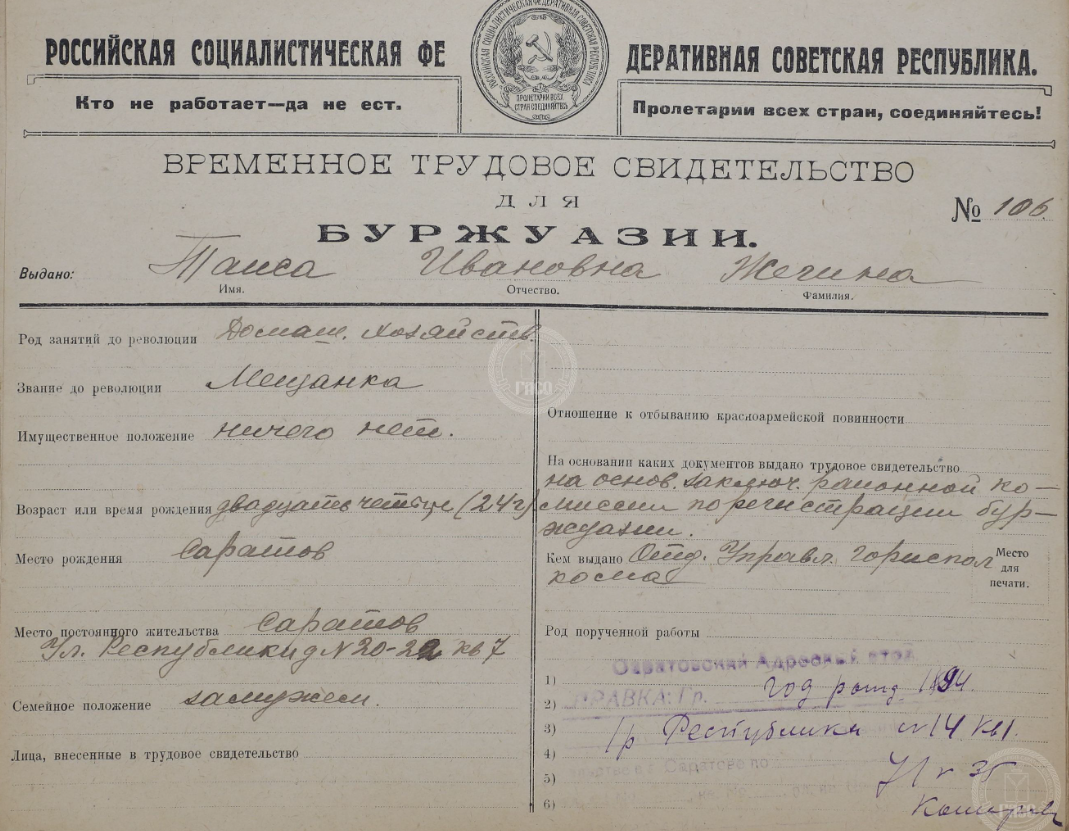 РОССИЙСКАЯ СОЦИАЛИСТИЧЕСКАЯ ФЕДЕРАТИВНАЯ СОВЕТСКАЯ РЕСПУБЛИКА.
Кто не работает—да не ест.
ПРОЛЕТАРИИ ВСЕХ СТРАН СОЕДИНЯЙТЕСЬ
Пролетарии всех стран, соединяйтесь!
ВРЕМЕННОЕ ТРУДОВОЕ СВИДЕТЕЛЬСТВО
ДЛЯ
№ 106
БУРЖУАЗИИ.
Выдано: Таиса Ивановна Жегина
Имя. Отчество. Фамилия.
Род занятий до революции Домаш. хозяйств.
Звание до революции Мещанка
Имущественное положение ничего нет.
Возраст или время рождения двадцать четыре (24 г)
Место рождения Саратов
Место постоянного жительства Саратов
Ул. Республики д № 20-22 кв 7
Семейное положение замужем.
Лица, внесенные в трудовое свидетельство
Отношение к отбыванию красноармейской повинности
На основании каких документов выдано трудовое свидетельство
на основ. заключ. районной ко-
миссии по регистрации бур-
жуазии.
Кем выдано Отд. Управл. горисполкома
Место для печати.
Род порученной работы
Саратовский Адресный стол
1)
СПРАВКА: Гр. год рожд. 1894.
2)
3) Республики № 14 кв 1.
4)
Саратове по
5)
6)
ГАСО